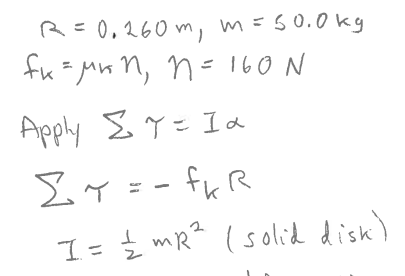 R = 0.260 m, m = 50.0 kg
fk = μk n, n = 160 N
Apply Στ = Iα
Στ = - fk R
I = ½ mR² (solid disk)